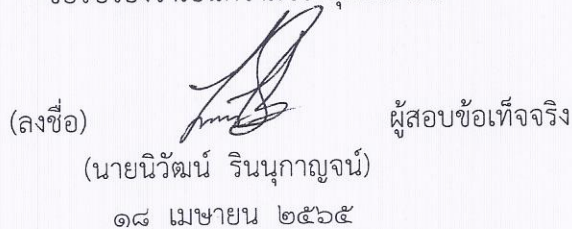 (ลงชื่อ) ผู้สอบข้อเท็จจริง
(นายนิวัฒน์ รินนุกาญจน์)
๑๘ เมษายน ๒๕๖๕